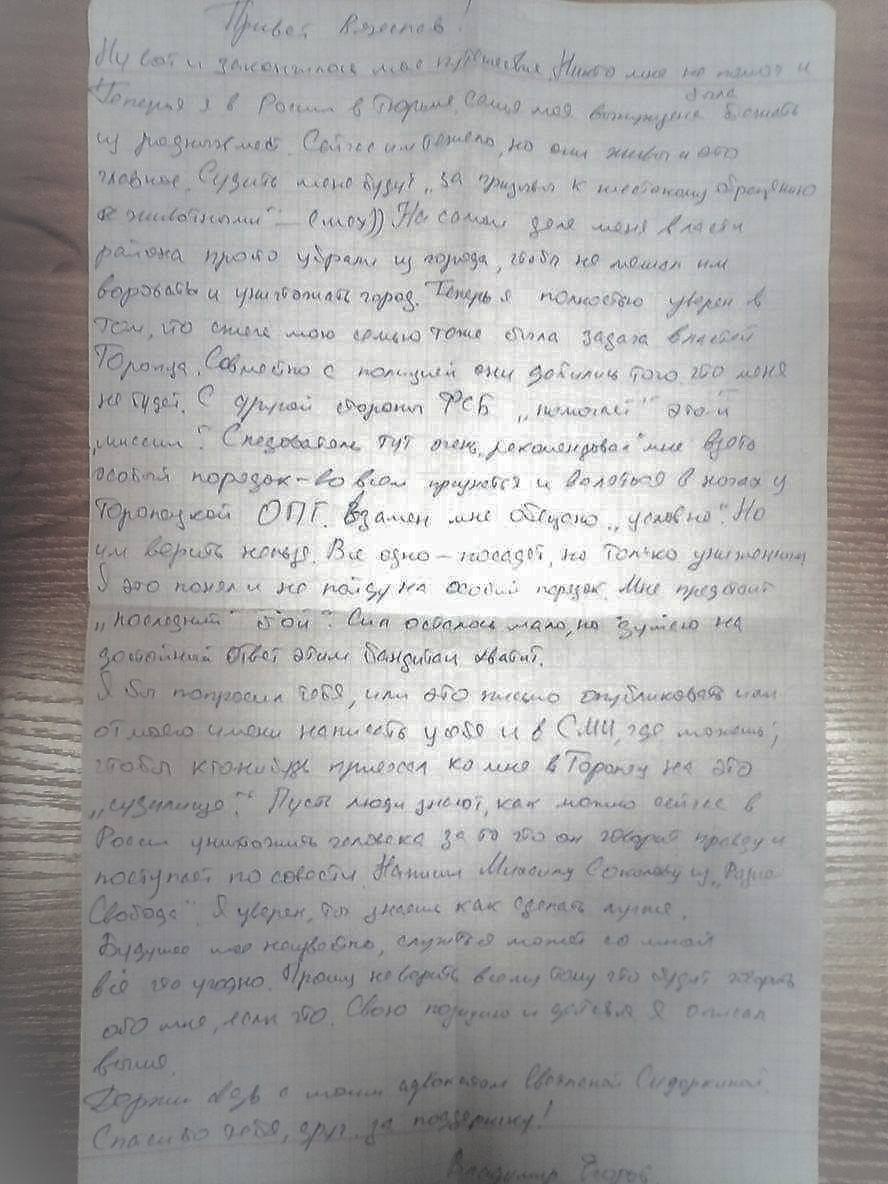 Привет Вячеслав!
Ну вот и закончилось мое путешествие. Никто мне не помог и
Теперь я в России в Тюрьме. Семья моя вынуждена была бежать
из родных мест. Сейчас им тяжело, но они живы и это
главное. Судить меня будут „за призывы к жестокому обращению
с животными" – (мол)) На самом деле меня власти
района просто убрали из города, чтобы не мешал им
воровать и уничтожать город. Теперь я полностью уверен в
том, что сжечь мою семью тоже была задача властей
Торопца. Совместно с полицией они добились того что меня
не будет. С другой стороны ФСБ „помогает" этой
„миссии". Следователь тут очень „рекомендовал" мне взять
особый порядок – во всем признаться и валяться в ногах у
Торопецкой ОПГ. Взамен мне обещано „условно". Но
им верить нельзя. Все одно – посадят, но только униженным
Я это понял и не пойду на особый порядок. Мне предстоит
„последний бой". Сил осталось мало, но думаю на
достойный ответ этим бандитам хватит.
Я бы попросил тебя, или это письмо опубликовать или
от моего имени написать у себя и в СМИ, где можешь,
чтобы ктонибудь приехал ко мне в Торопец на это
„судилище". Пусть люди знают, как можно сейчас в
России уничтожить человека за то что он говорит правду и
поступает по совести. Напиши Михаилу Соколову из „Радио
Свобода". Я уверен, ты знаешь как сделать лучше.
Будущее мое неизвестно, случиться может со мной
всё что угодно. Прошу не верить всему тому что будут говорить
обо мне, если что. Свою позицию и действия я описал
выше.
Держи связь с моим адвокатом Светланой Сидоркиной.
Спасибо тебе, друг, за поддержку!
Владимир Егоров